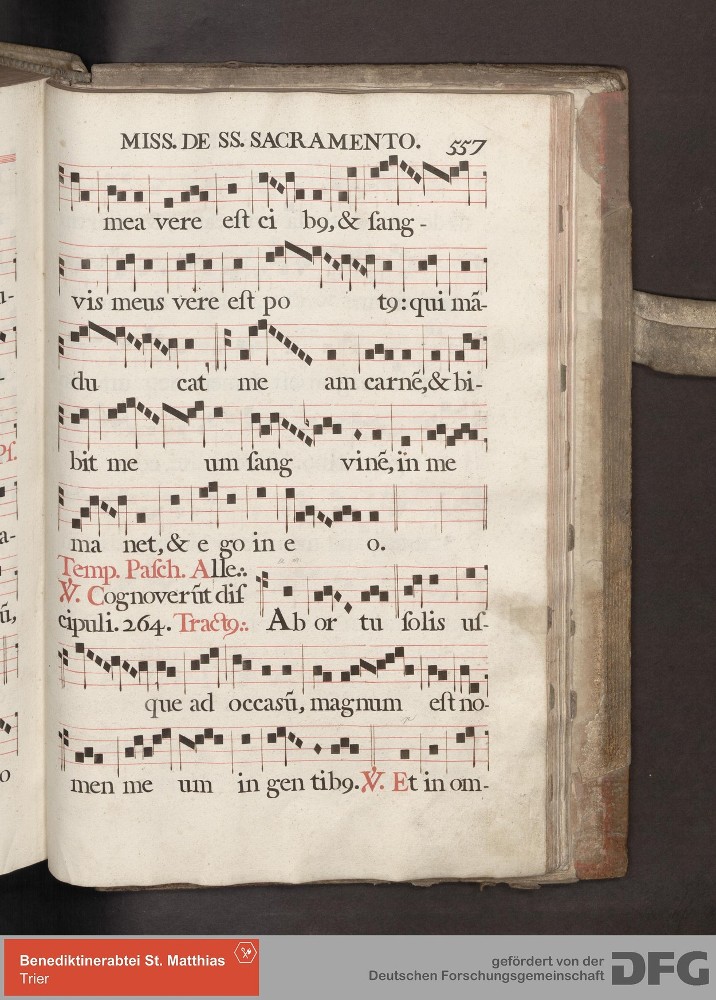 MISS. DE SS. SACRAMENTO. 557
mea vere eſt ci b9, & ſang -
vis meus vere eſt po t9: qui mā-
du cat me am carnē, & bi-
bit me um ſang vinē, in me
ma net, & e go in e o.
Temp. Paſch. Alle.:
℣. Cognoverūt diſ
cipuli. 264. Tract9.: Ab or tu ſolis uſ-
que ad occasū, magnum eſt no-
men me um in gen tib9. ℣. Et in om-
Pſ.
a-
ū,
o
Benediktinerabtei St. Matthias
Trier
gefördert von der
Deutschen Forschungsgemeinschaft
DFG